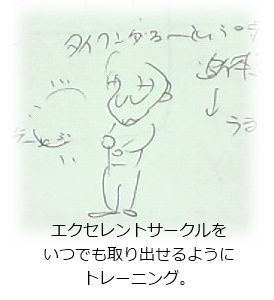 タイワンダーという
↓
うる
エクセレントサークルを
いつでも取り出せるように
トレーニング。